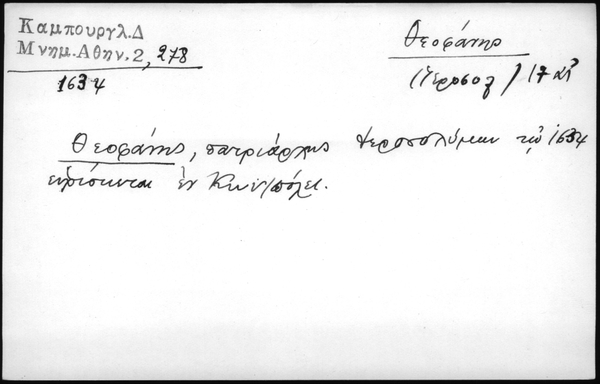 Καμπουργλ.Δ
Μνημ.Αθην.2, 278
1634
Θεοφάνης
(Ἱεροσολ) 17 αἰ
Θεοφάνης, πατριάρχης Ἱεροσολύμων τῷ 1634
εὑρίσκεται ἐν Κων/πόλει.